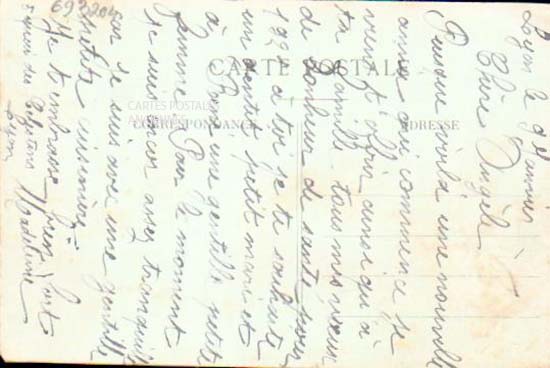 Lyon le 9 Janvier
Chère Angèle
Puisque voilà une nouvelle
année qui commence je
viens t'offrir ainsi qu'à
ta famille tous mes vœux
de bonheur de santé pour
192 à toi je te souhaite
un gentil petit mari et
à Pierre une gentille petite
femme Pour le moment
je suis encor assez tranquille
car je suis avec une gentille
petite cuisinière
Je t'embrasse bien fort
Madeleine
Lyon
CARTE POSTALE
CORRESPONDANCE
ADRESSE
CARTES POSTALES
ANCIENNES
693204